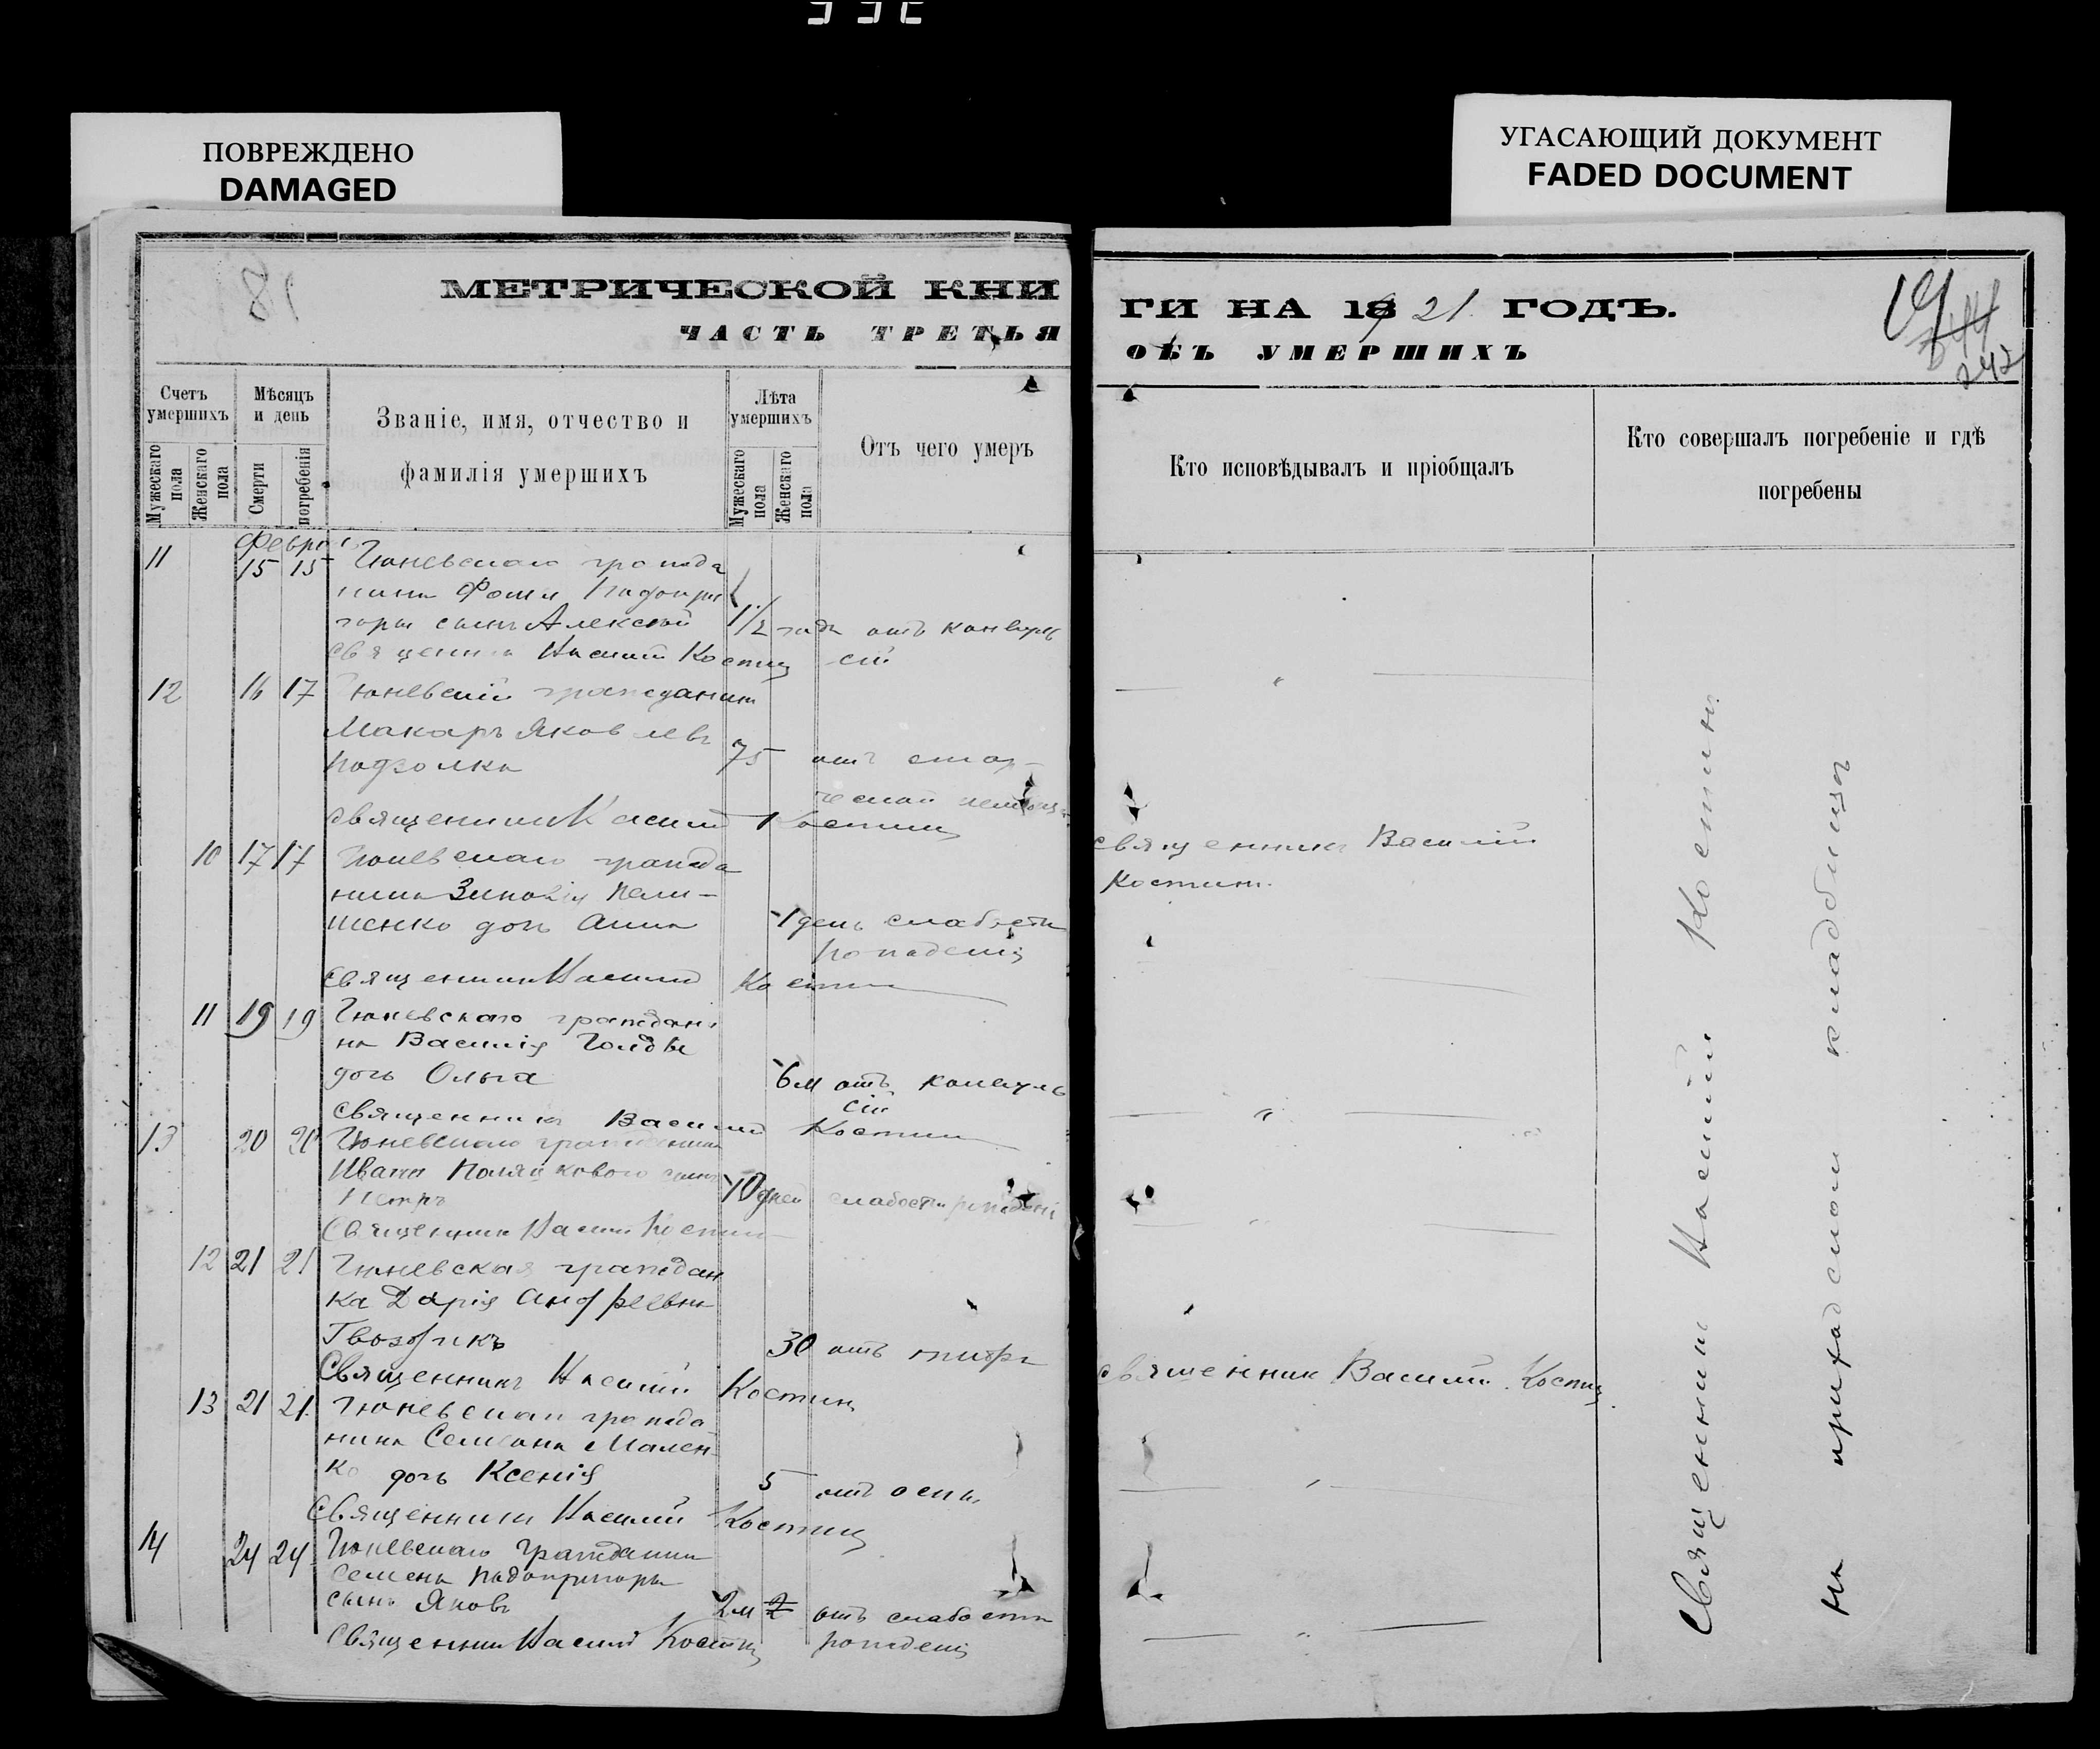 ПОВРЕЖДЕНО
DAMAGED
УГАСАЮЩИЙ ДОКУМЕНТ
FADED DOCUMENT
81
МЕТРИЧЕСКОЙ КНИ
ЧАСТЬ ТРЕТЬЯ
ГИ НА 1921 ГОДЪ.
ОБЪ УМЕРШИХЪ
242
Счетъ умершихъ
Мужескаго пола
Женскаго пола
Мѣсяцъ и день
Смерти
погребенія
Званіе, имя, отчество и
фамилія умершихъ
Лѣта умершихъ
Мужескаго пола
Женскаго пола
Отъ чего умеръ
Кто исповѣдывалъ и пріобщалъ
Кто совершалъ погребеніе и гдѣ
погребены
11 15 15 гражда
нина Фомы
сынъ Алексѣй 1/2 года отъ конвуль
Священникъ Василій Костинъ сій
12 16 17 гражданинъ
Макаръ Яковлевъ
75 отъ стар-
ческой
Священникъ Василій Костинъ
Священникъ Василій
Костинъ.
10 17 17 гражда
нина Зиновія Пели-
шенко дочь Анна 1 день слабости
рожденія
Священникъ Василій Костинъ
11 19 19 граждани
на Василія
дочь Ольга 6 м отъ конвуль
сій
Священникъ Василій Костинъ
13 20 20 гражданина
Ивана сынъ
Петръ 10 дней слабости рожденія
Священникъ Василій Костинъ
12 21 21 граждан
ка Дарія Андреевна
Гвоздикъ 30 отъ тифа
Священникъ Василій Костинъ
Священник Василій Костинъ
13 21 21 гражда
нина Семіона Мален
ко дочь Ксенія 5 отъ оспы
Священникъ Василій Костинъ
14 24 24 гражданина
Семена Подопригоры
сынъ Яковъ 2 м 2 отъ слабости
Священникъ Василій Костинъ рожденія
Священникъ Василій Костинъ
на приходскомъ кладбищѣ